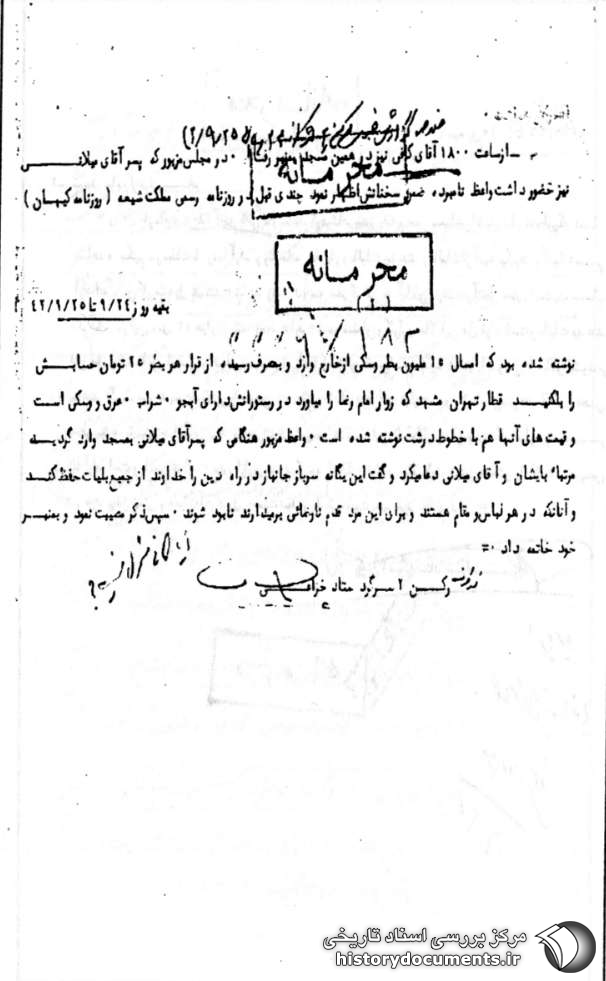 ـ از ساعت ۱۸۰۰ آقای کافی نیز در همین مسجد بمنبر رفت ۰ در مجلس مزبور که پسر آقای میلانـــی
محرمانه
نیز حضور داشت واعظ نامبرده ضمن سخنانش اظهار نمود چندی قبل در روزنامه رسمی مملکت شیعه ( روزنامه کیهان )
محرمانه
بقیه روز ۹/۲۴ تا ۴۲/۹/۲۵
نوشته شده بود که امسال ۱۵ ملیون بطر وسکی ازخارج وارد و بمصرف رسیده از قرار هر بطر ۲۵ تومان حسابـش
را بکنیــد قطار تهران مشهد که زوار امام رضا را میاورد در رستورانش دارای آبجو ۰ شراب ۰ عرق و وسکی اسـت
و قیمت های آنها هم با خطوط درشت نوشته شده است ۰ واعظ مزبور هنگامی که پسر آقای میلانی بمسجد وارد گردیـده
مرتبا" بایشان و آقای میلانی دعا میکرد و گفت این یگانه سرباز جانباز در راه دین را خداوند از جمیع بلیات حفظ کنـد
و آنانکه در هر لباس و مقام هستند و برای این مرد قدم ناروائی برمیدارند نابود شوند ۰ سپس ذکر مصیبت نمود و بمنبــر
خود خاتمه داد ۰=
رکـــن ۲ ســرگرد ستاد
مرکز بررسی اسناد تاریخی
historydocuments.ir